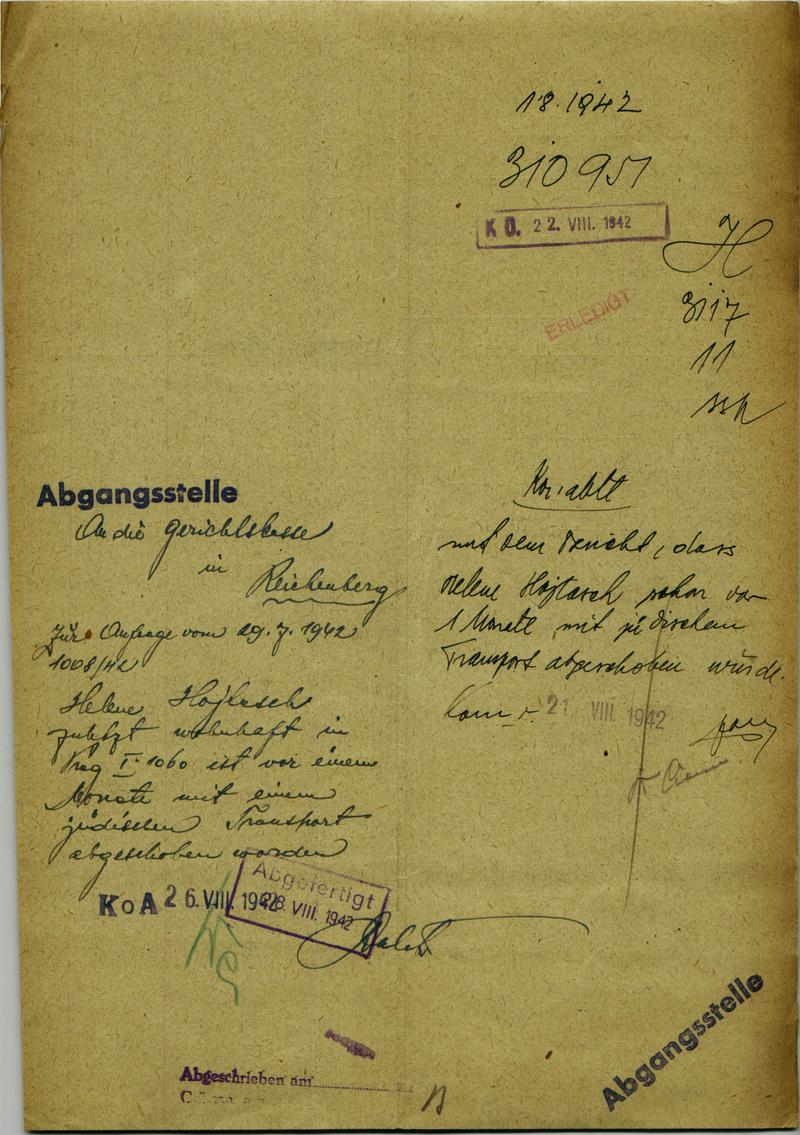 18.1942
310951
K O. 22. VIII. 1942
H
3117
11
ERLEDIGT
mit dem Bericht, dass
Helene Hojtasch schon vor
1 Monate mit jüdischem
Transport abgeschoben wurde.
21 VIII 1942
Abgangsstelle
An die Gerichtskasse
in
Reichenberg
Zur Anfrage vom 29.7.1942
1008/42
Helene Hojtasch
zuletzt wohnhaft in
Prag I-1060 ist vor einem
Monate mit einem
jüdischen Transport
abgeschoben worden
KoA 26. VIII. 1942
Abgefertigt
28. VIII. 1942
Abgeschrieben am
Abgangsstelle